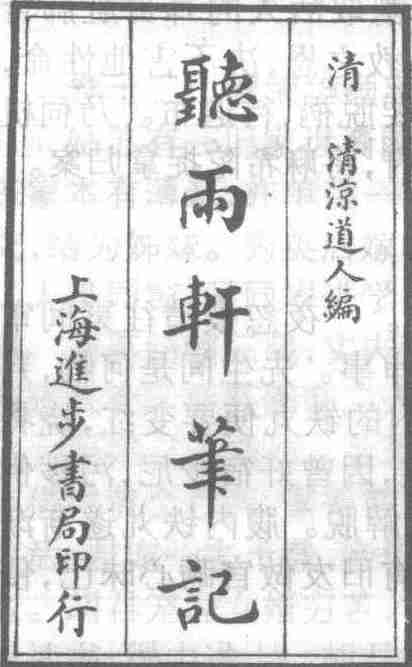 清 清涼道人編
聽雨軒筆記
上海進步書局印行